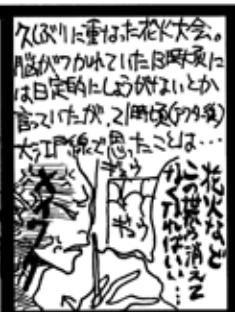 久しぶりに重なった花火大会。
脳がつかれていた13時頃に
は日定的にしょうがないとか
言っていたが、21時頃(アフター後)
大江戸線で思ったことは…
花火など
この世から消えて
なくなればいい…
ぎゅう
ぎゅう